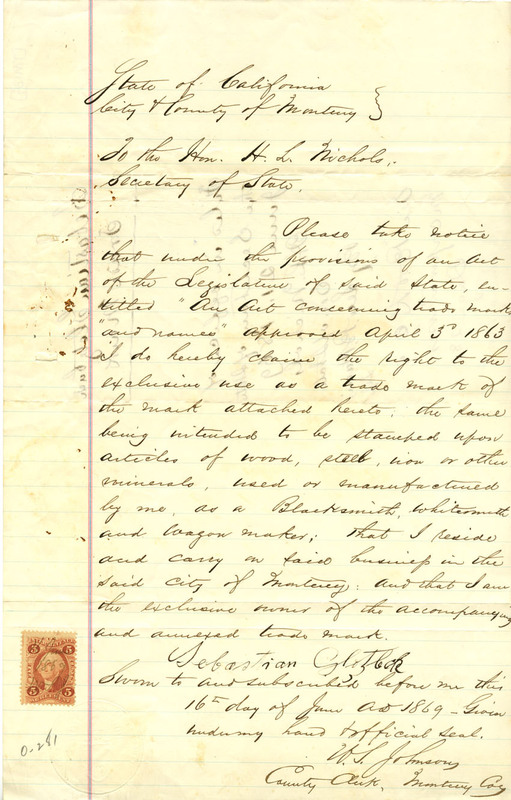 State of California
City & County of Monterey }
To the Hon. H. L. Nichols,
Secretary of State.
Please take notice
that under the provisions of an Act
of the Legislature of said State, en-
titled "An Act concerning trade marks
"and names" approved April 3d 1863
I do hereby claim the right to the
exclusive use as a trade mark of
the mark attached hereto; the same
being intended to be stamped upon
articles of wood, steel, iron or other
minerals, used or manufactured
by me, as a Blacksmith, Whitesmith
and Wagon maker; that I reside
and carry on said business in the
said City of Monterey: and that I am
the exclusive owner of the accompanying
and annexed trade mark.
Sebastian
Sworn to and subscribed before me this
16th day of June AD 1869 - Given
under my hand & official seal.
W. S. Johnson
County Clerk, Monterey Coy
5 5
5 5
0-281